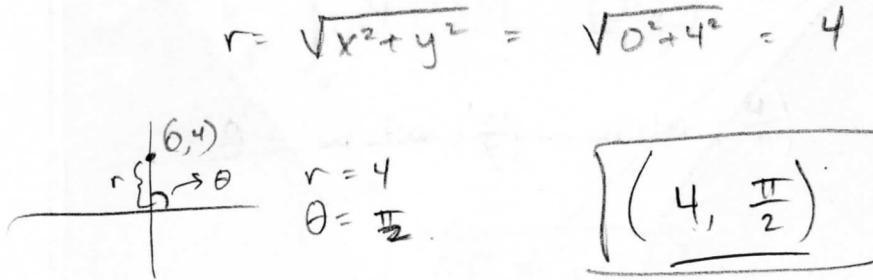 r = √x²+y² = √0²+4² = 4
(0,4)
r → θ
r = 4
θ = π/2.
(4, π/2)